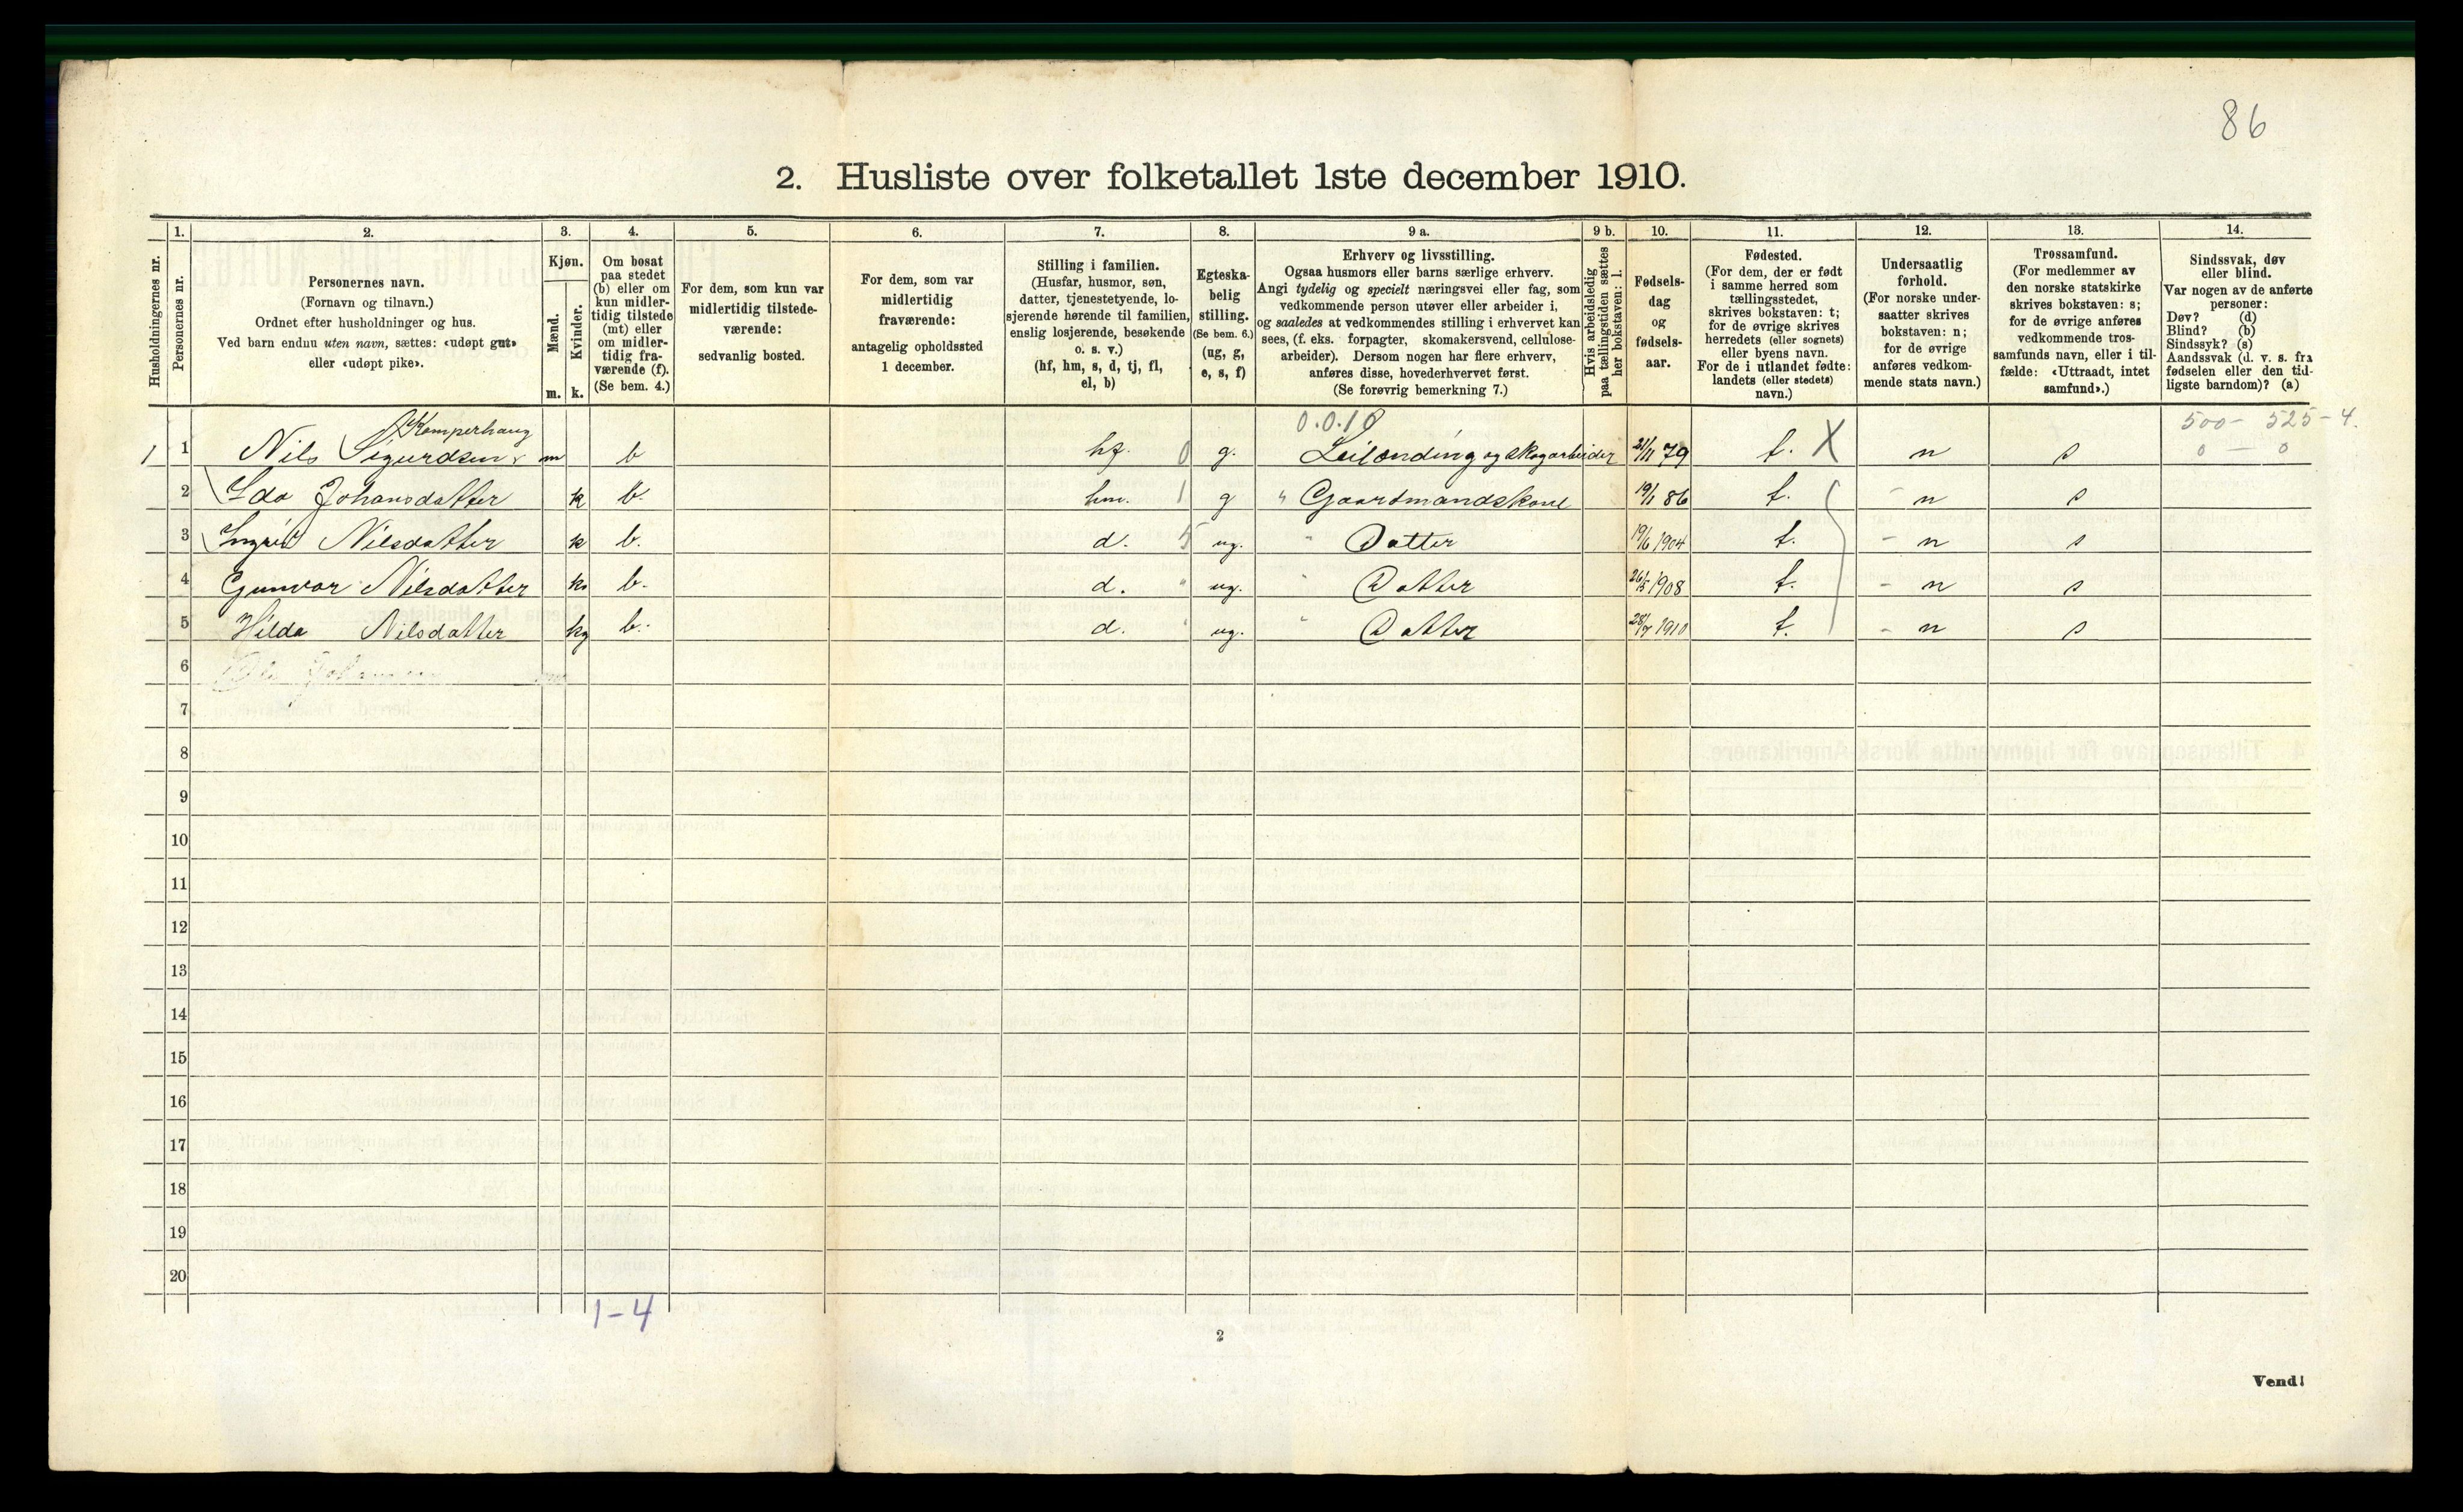 86
2. Husliste over folketallet 1ste december 1910.
Husholdningernes nr.
1.
Personernes nr.
2.
Personernes navn.
(Fornavn og tilnavn.)
Ordnet efter husholdninger og hus.
Ved barn endnu uten navn, sættes: «udøpt gut»
eller «udøpt pike».
3.
Kjøn.
Mænd.
Kvinder.
m. k.
4.
Om bosat
paa stedet
(b) eller om
kun midler-
tidig tilstede
(mt) eller
om midler-
tidig fra-
værende (f).
(Se bem. 4.)
5.
For dem, som kun var
midlertidig tilstede-
værende:
sedvanlig bosted.
6.
For dem, som var
midlertidig
fraværende:
antagelig opholdssted
1 december.
7.
Stilling i familien.
(Husfar, husmor, søn,
datter, tjenestetyende, lo-
sjerende hørende til familien,
enslig losjerende, besøkende
o. s. v.)
(hf, hm, s, d, tj, fl,
el, b)
8.
Egteska-
belig
stilling.
(Se bem. 6.)
(ug, g,
e, s, f)
9 a.
Erhverv og livsstilling.
Ogsaa husmors eller barns særlige erhverv.
Angi tydelig og specielt næringsvei eller fag, som
vedkommende person utøver eller arbeider i,
og saaledes at vedkommendes stilling i erhvervet kan
sees, (f. eks. forpagter, skomakersvend, cellulose-
arbeider). Dersom nogen har flere erhverv,
anføres disse, hovederhvervet først.
(Se forøvrig bemerkning 7.)
9 b.
Hvis arbeidsledig
paa tællingstiden sættes
her bokstaven: l.
10.
Fødsels-
dag
og
fødsels-
aar.
11.
Fødested.
(For dem, der er født
i samme herred som
tællingsstedet,
skrives bokstaven: t;
for de øvrige skrives
herredets (eller sognets)
eller byens navn.
For de i utlandet fødte:
landets (eller stedets)
navn.)
12.
Undersaatlig
forhold.
(For norske under-
saatter skrives
bokstaven: n;
for de øvrige
anføres vedkom-
mende stats navn.)
13.
Trossamfund.
(For medlemmer av
den norske statskirke
skrives bokstaven: s;
for de øvrige anføres
vedkommende tros-
samfunds navn, eller i til-
fælde: «Uttraadt, intet
samfund».)
14.
Sindssvak, døv
eller blind.
Var nogen av de anførte
personer:
Døv? (d)
Blind? (b)
Sindssyk? (s)
Aandssvak (d. v. s. fra
fødselen eller den tid-
ligste barndom)? (a)
Kamperhaug 0.0.10 500 - 525 - 4.
1 1 Nils Sigurdsen m b hf. 0 g. Leilænding og skogarbeider 21/11 79 t. X n s 0 — 0
2 Ida Johansdatter k b. hm. 1 g " Gaardmandskone 19/1 86 t. - n s
3 Ingrid Nilsdatter k b. d. 5 ug. " Datter 19/6 1904 t. - n s
4 Gunvor Nilsdatter k b. d. " ug. " Datter 26/5 1908 t. - n s
5 Hilda Nilsdatter k b. d. " ug. " Datter 28/7 1910 t. - n s
6
7
8
9
10
11
12
13
14
15
16
17
18
19
20
1-4
2
Vend!